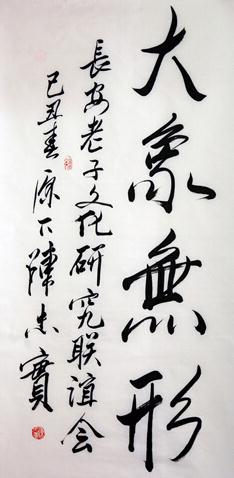 大象無形
長安老子文化研究联誼会
己丑春 原下陳忠實